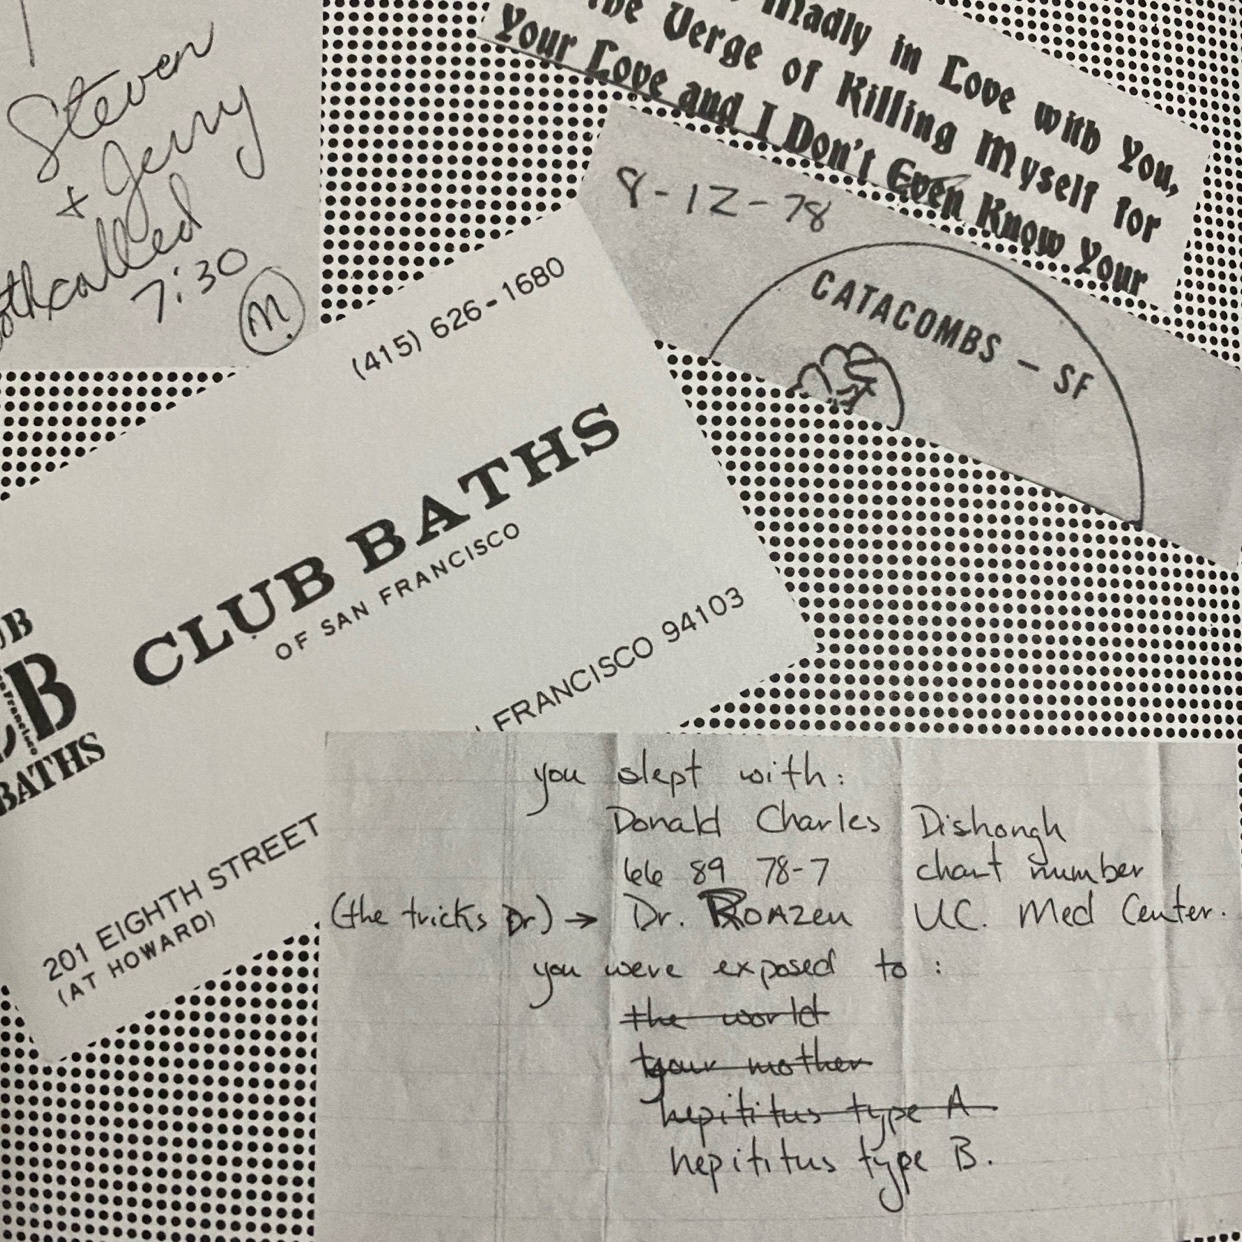 Steven
+ Jerry
called
7:30
M.
Madly in Love with You,
the Verge of Killing Myself for
Your Love and I Don't Even Know Your
8-12-78
CATACOMBS — SF
(415) 626-1680
CLUB BATHS
OF SAN FRANCISCO
FRANCISCO 94103
B
Francisco
BATHS
201 EIGHTH STREET
(AT HOWARD)
you slept with:
Donald Charles Dishongh
66 89 78-7 chart number
(the tricks Dr) → Dr. Roazen UC. Med Center.
you were exposed to:
the world
your mother
hepititus type A
hepititus type B.